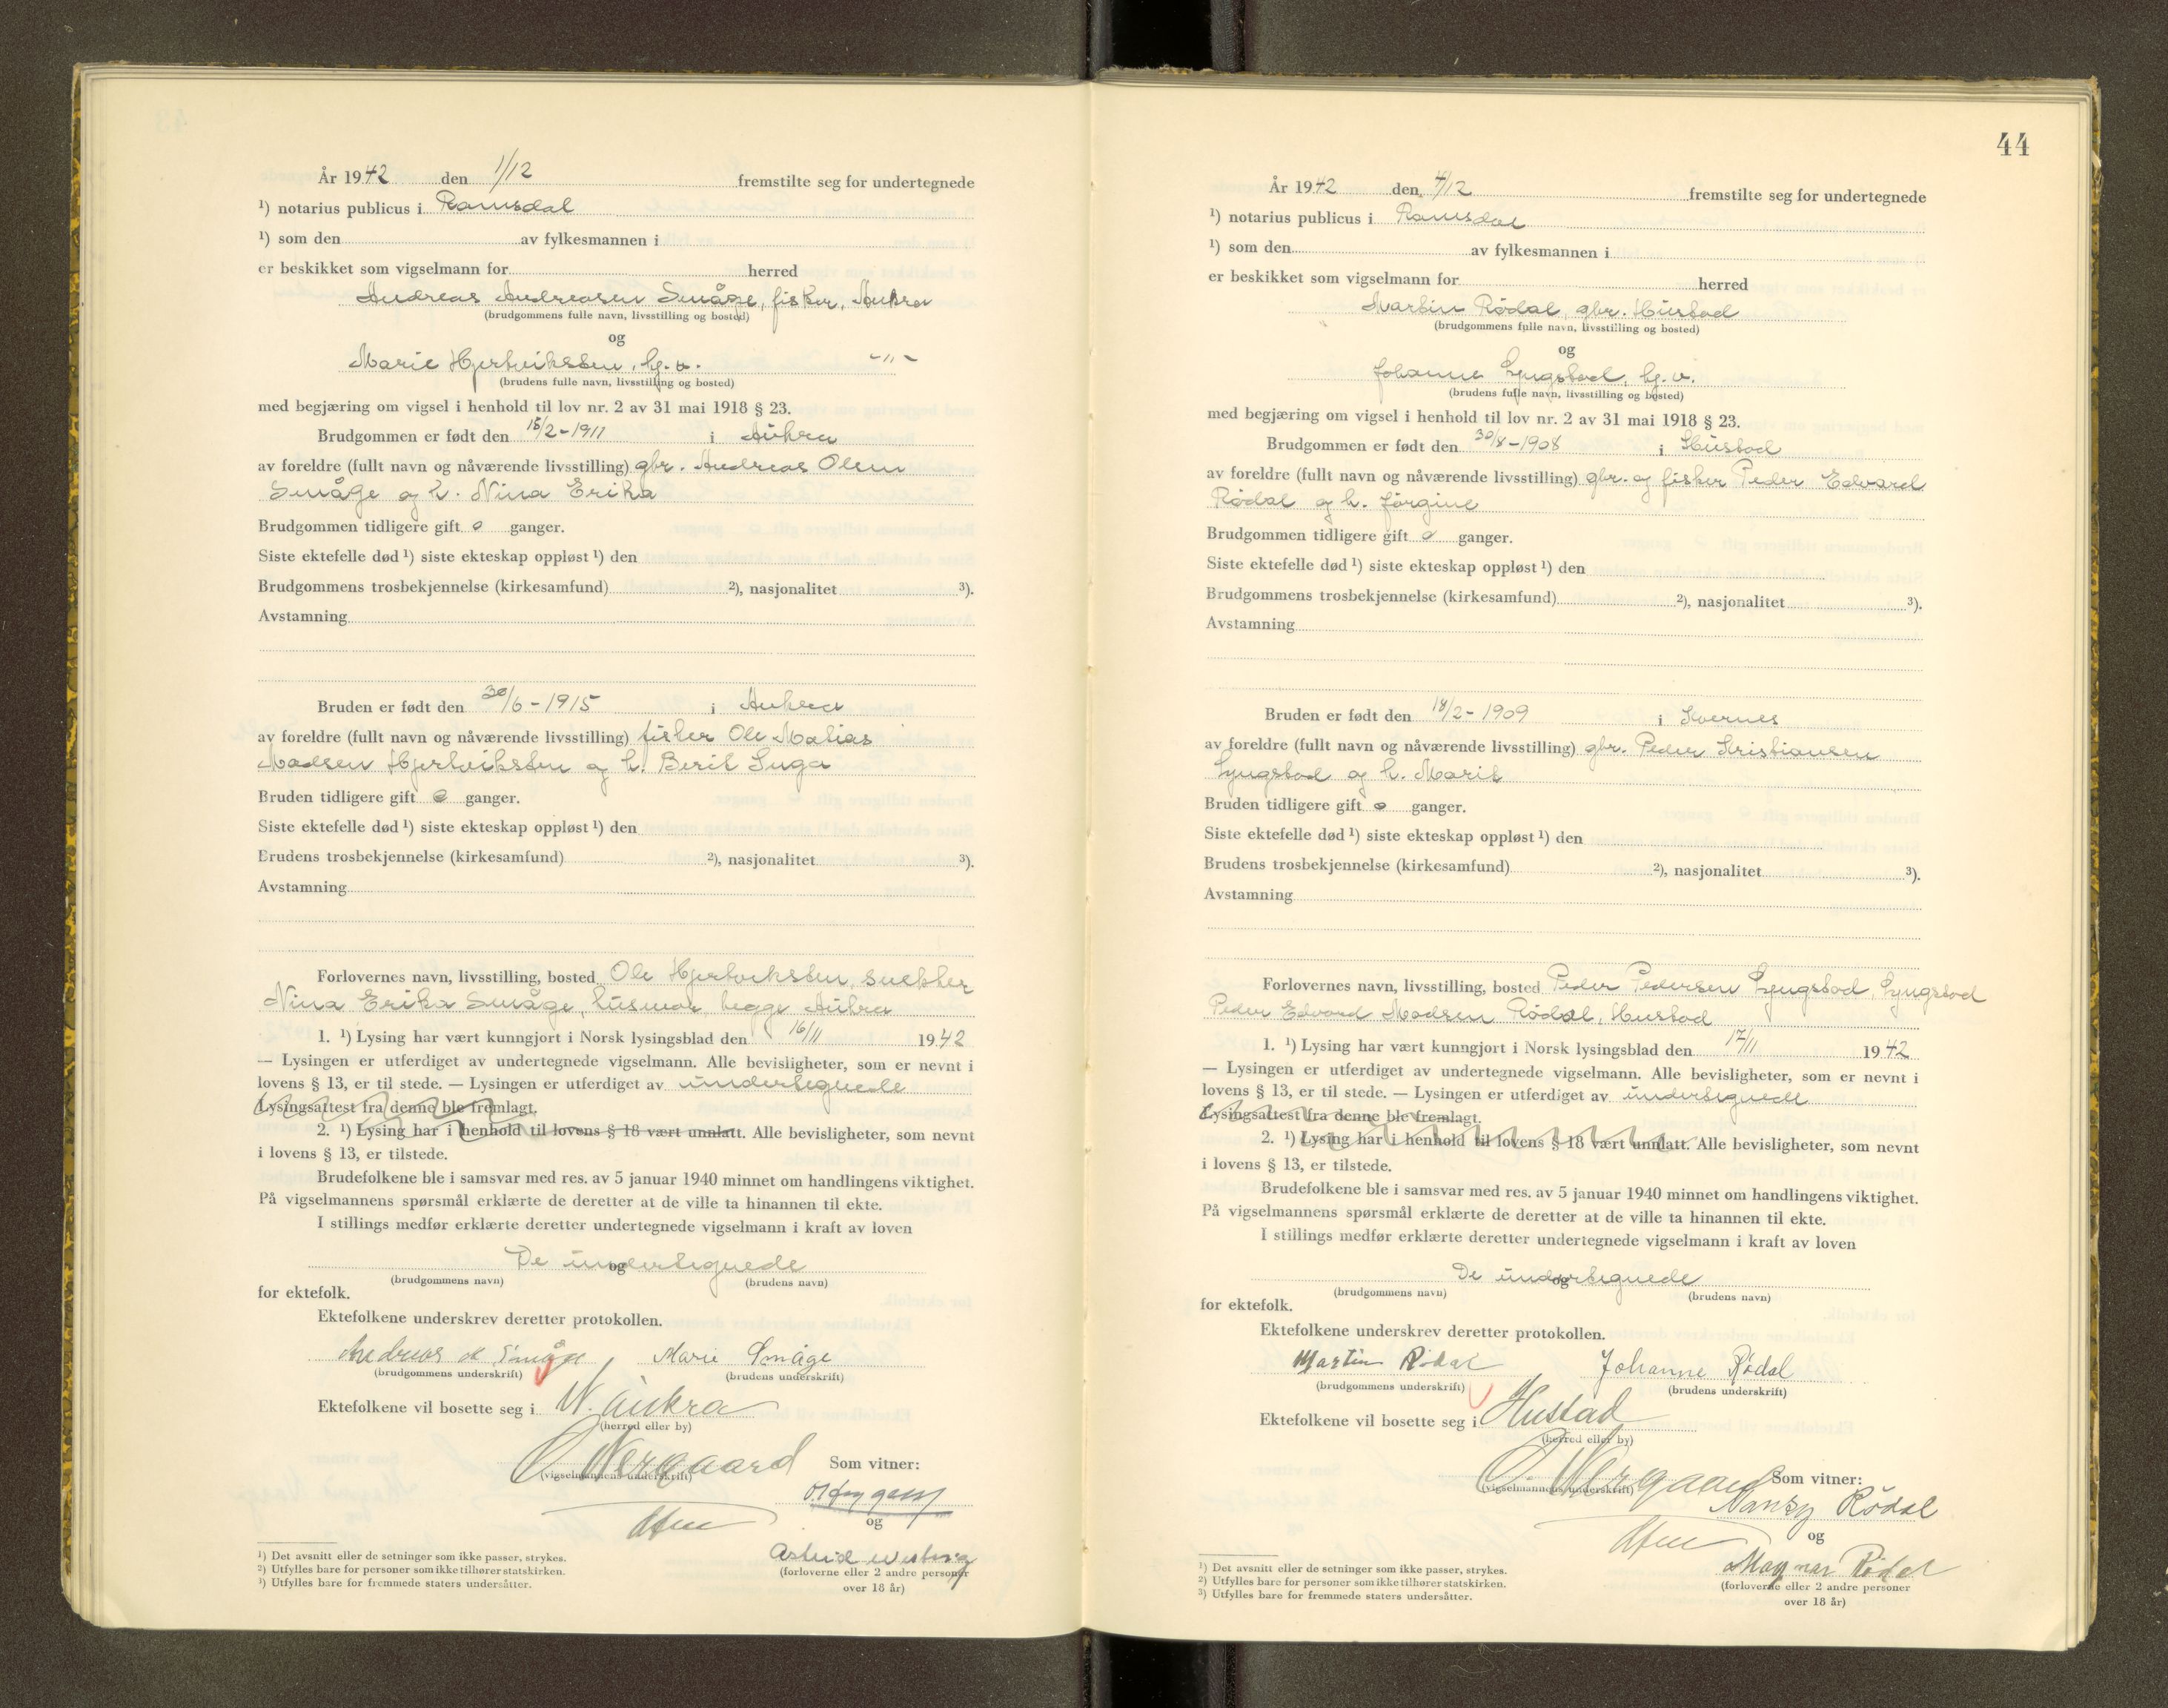 År 1942 den 1/12 fremstilte seg for undertegnede
¹) notarius publicus i Romsdal
¹) som den av fylkesmannen i
er beskikket som vigselmann for herred
Andreas Andreasen Småge, fisker, Aukra
(brudgommens fulle navn, livsstilling og bosted)
og
Marie Hjertviksten, hj. v. -"-
(brudens fulle navn, livsstilling og bosted)
med begjæring om vigsel i henhold til lov nr. 2 av 31 mai 1918 § 23.
Brudgommen er født den 18/2-1911 i Aukra
av foreldre (fullt navn og nåværende livsstilling) gbr. Andreas Olsen
Småge og h. Nina Erika
Brudgommen tidligere gift 0 ganger.
Siste ektefelle død ¹) siste ekteskap oppløst ¹) den
Brudgommens trosbekjennelse (kirkesamfund) ²), nasjonalitet ³).
Avstamning
Bruden er født den 30/6-1915 i Aukra
av foreldre (fullt navn og nåværende livsstilling) fisker Ole Matias
Madsen Hjertviksten og h. Berit Inga
Bruden tidligere gift 0 ganger.
Siste ektefelle død ¹) siste ekteskap oppløst ¹) den
Brudens trosbekjennelse (kirkesamfund) ²), nasjonalitet ³).
Avstamning
Forlovernes navn, livsstilling, bosted Ole Hjertviksten, snekker
Nina Erika Småge, husmor, begge Aukra
1. ¹) Lysing har vært kunngjort i Norsk lysingsblad den 16/11 1942
— Lysingen er utferdiget av undertegnede vigselmann. Alle bevisligheter, som er nevnt i
lovens § 13, er til stede. — Lysingen er utferdiget av undertegnede
Lysingsattest fra denne ble fremlagt.
2. ¹) Lysing har i henhold til lovens § 18 vært unnlatt. Alle bevisligheter, som nevnt
i lovens § 13, er tilstede.
Brudefolkene ble i samsvar med res. av 5 januar 1940 minnet om handlingens viktighet.
På vigselmannens spørsmål erklærte de deretter at de ville ta hinannen til ekte.
I stillings medfør erklærte deretter undertegnede vigselmann i kraft av loven
De undertegnede
og
(brudgommens navn) (brudens navn)
for ektefolk.
Ektefolkene underskrev deretter protokollen.
Andreas A Småge Marie Småge
(brudgommens underskrift) (brudens underskrift)
Ektefolkene vil bosette seg i N. Aukra
(herred eller by)
O. Nergaard Som vitner:
(vigselmannens underskrift)
og
Astrid
(forloverne eller 2 andre personer
over 18 år)
¹) Det avsnitt eller de setninger som ikke passer, strykes.
²) Utfylles bare for personer som ikke tilhører statskirken.
³) Utfylles bare for fremmede staters undersåtter.
44
År 1942 den 4/12 fremstilte seg for undertegnede
¹) notarius publicus i Romsdal
¹) som den av fylkesmannen i
er beskikket som vigselmann for herred
Martin Rødal, gbr. Hustad
(brudgommens fulle navn, livsstilling og bosted)
og
Johanne Lyngstad, hj. v.
(brudens fulle navn, livsstilling og bosted)
med begjæring om vigsel i henhold til lov nr. 2 av 31 mai 1918 § 23.
Brudgommen er født den 30/8-1908 i Hustad
av foreldre (fullt navn og nåværende livsstilling) gbr. og fisker Peder Edvard
Rødal og h. Jørgine
Brudgommen tidligere gift 0 ganger.
Siste ektefelle død ¹) siste ekteskap oppløst ¹) den
Brudgommens trosbekjennelse (kirkesamfund) ²), nasjonalitet ³).
Avstamning
Bruden er født den 18/2-1909 i Kvernes
av foreldre (fullt navn og nåværende livsstilling) gbr. Peder Kristiansen
Lyngstad og h. Marit
Bruden tidligere gift 0 ganger.
Siste ektefelle død ¹) siste ekteskap oppløst ¹) den
Brudens trosbekjennelse (kirkesamfund) ²), nasjonalitet ³).
Avstamning
Forlovernes navn, livsstilling, bosted Peder Pedersen Lyngstad, Lyngstad
Peder Edvard Madsen Rødal, Hustad
1. ¹) Lysing har vært kunngjort i Norsk lysingsblad den 17/11 1942
— Lysingen er utferdiget av undertegnede vigselmann. Alle bevisligheter, som er nevnt i
lovens § 13, er til stede. — Lysingen er utferdiget av undertegnede
Lysingsattest fra denne ble fremlagt.
2. ¹) Lysing har i henhold til lovens § 18 vært unnlatt. Alle bevisligheter, som nevnt
i lovens § 13, er tilstede.
Brudefolkene ble i samsvar med res. av 5 januar 1940 minnet om handlingens viktighet.
På vigselmannens spørsmål erklærte de deretter at de ville ta hinannen til ekte.
I stillings medfør erklærte deretter undertegnede vigselmann i kraft av loven
De undertegnede
og
(brudgommens navn) (brudens navn)
for ektefolk.
Ektefolkene underskrev deretter protokollen.
Martin Rødal Johanne Rødal
(brudgommens underskrift) (brudens underskrift)
Ektefolkene vil bosette seg i Hustad
(herred eller by)
O. Nergaard Som vitner:
(vigselmannens underskrift)
Nansy Rødal
og
Magnar Rødal
(forloverne eller 2 andre personer
over 18 år)
¹) Det avsnitt eller de setninger som ikke passer, strykes.
²) Utfylles bare for personer som ikke tilhører statskirken.
³) Utfylles bare for fremmede staters undersåtter.